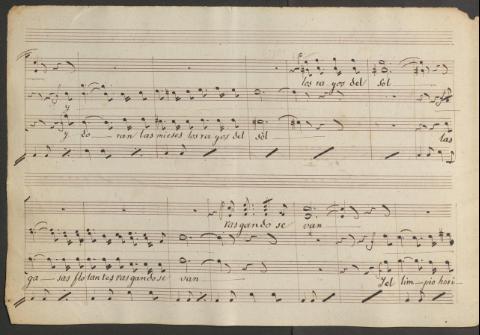 los ra yos del sol
y
y do — ran las mieses los ra yos del sol — las
rasgando se van
ga — sas flotantes rasgandose van — Y el lim — pio hori —